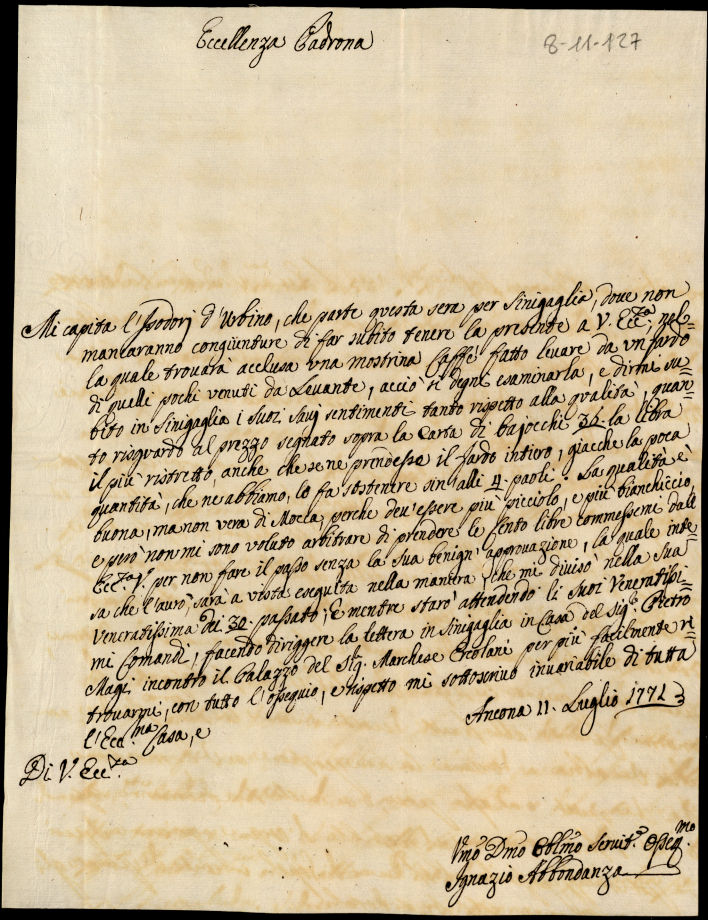 Eccellenza Padrona
8-11-127
Mi capita l'Issodorj d'Urbino, che parte questa sera per Sinigaglia, dove non
mancaranno congiunture di far subito tenere la presente a V. Ecc.za, nel=
la quale trovarà acclusa una mostrina Caffè fatto levare da un fardo
di quelli pochi venuti da Levante, acciò si degni esaminarla, e dirmi su=
bito in Sinigaglia i suoi savj sentimenti tanto rispetto alla qualità, quan=
to risguardo al prezzo segnato sopra la Carta di bajocchi 36 la libra
il più ristretto, anche che se ne prendesse il fardo intiero, giacche la poca
quantità, che ne abbiamo, lo fa sostenere sin'alli 4 paoli. La qualità è
buona, ma non vera di Mocca, perche dev'essere più picciolo, e più bianchiccio,
e però non mi sono voluto arbitrare di prendere le Cento libre commessemi dall'
Ecc.za V. per non fare il passo senza la sua benign'approvazione, la quale inte=
sa che l'avrò, sarà a vista eseguita nella maniera, che mi divisò nella Sua
Veneratissima di 30 passato; E mentre starò attendendo li suoi Veneratissi=
mi Comandi, facendo diriggere la lettera in Sinigaglia in Casa del Sig.r Pietro
Magi incontro il Palazzo del Sig. Marchese Ercolani per più facilmente ri=
trovarmi, con tutto l'ossequio, e rispetto mi sottoscrivo invariabile di tutta
l'Ecc.ma Casa, e
Ancona 11. Luglio 1771
Di V. Ecc.za
Vmo Dmo Obblmo Servit.e Osseq.mo
Ignazio Abbondanza